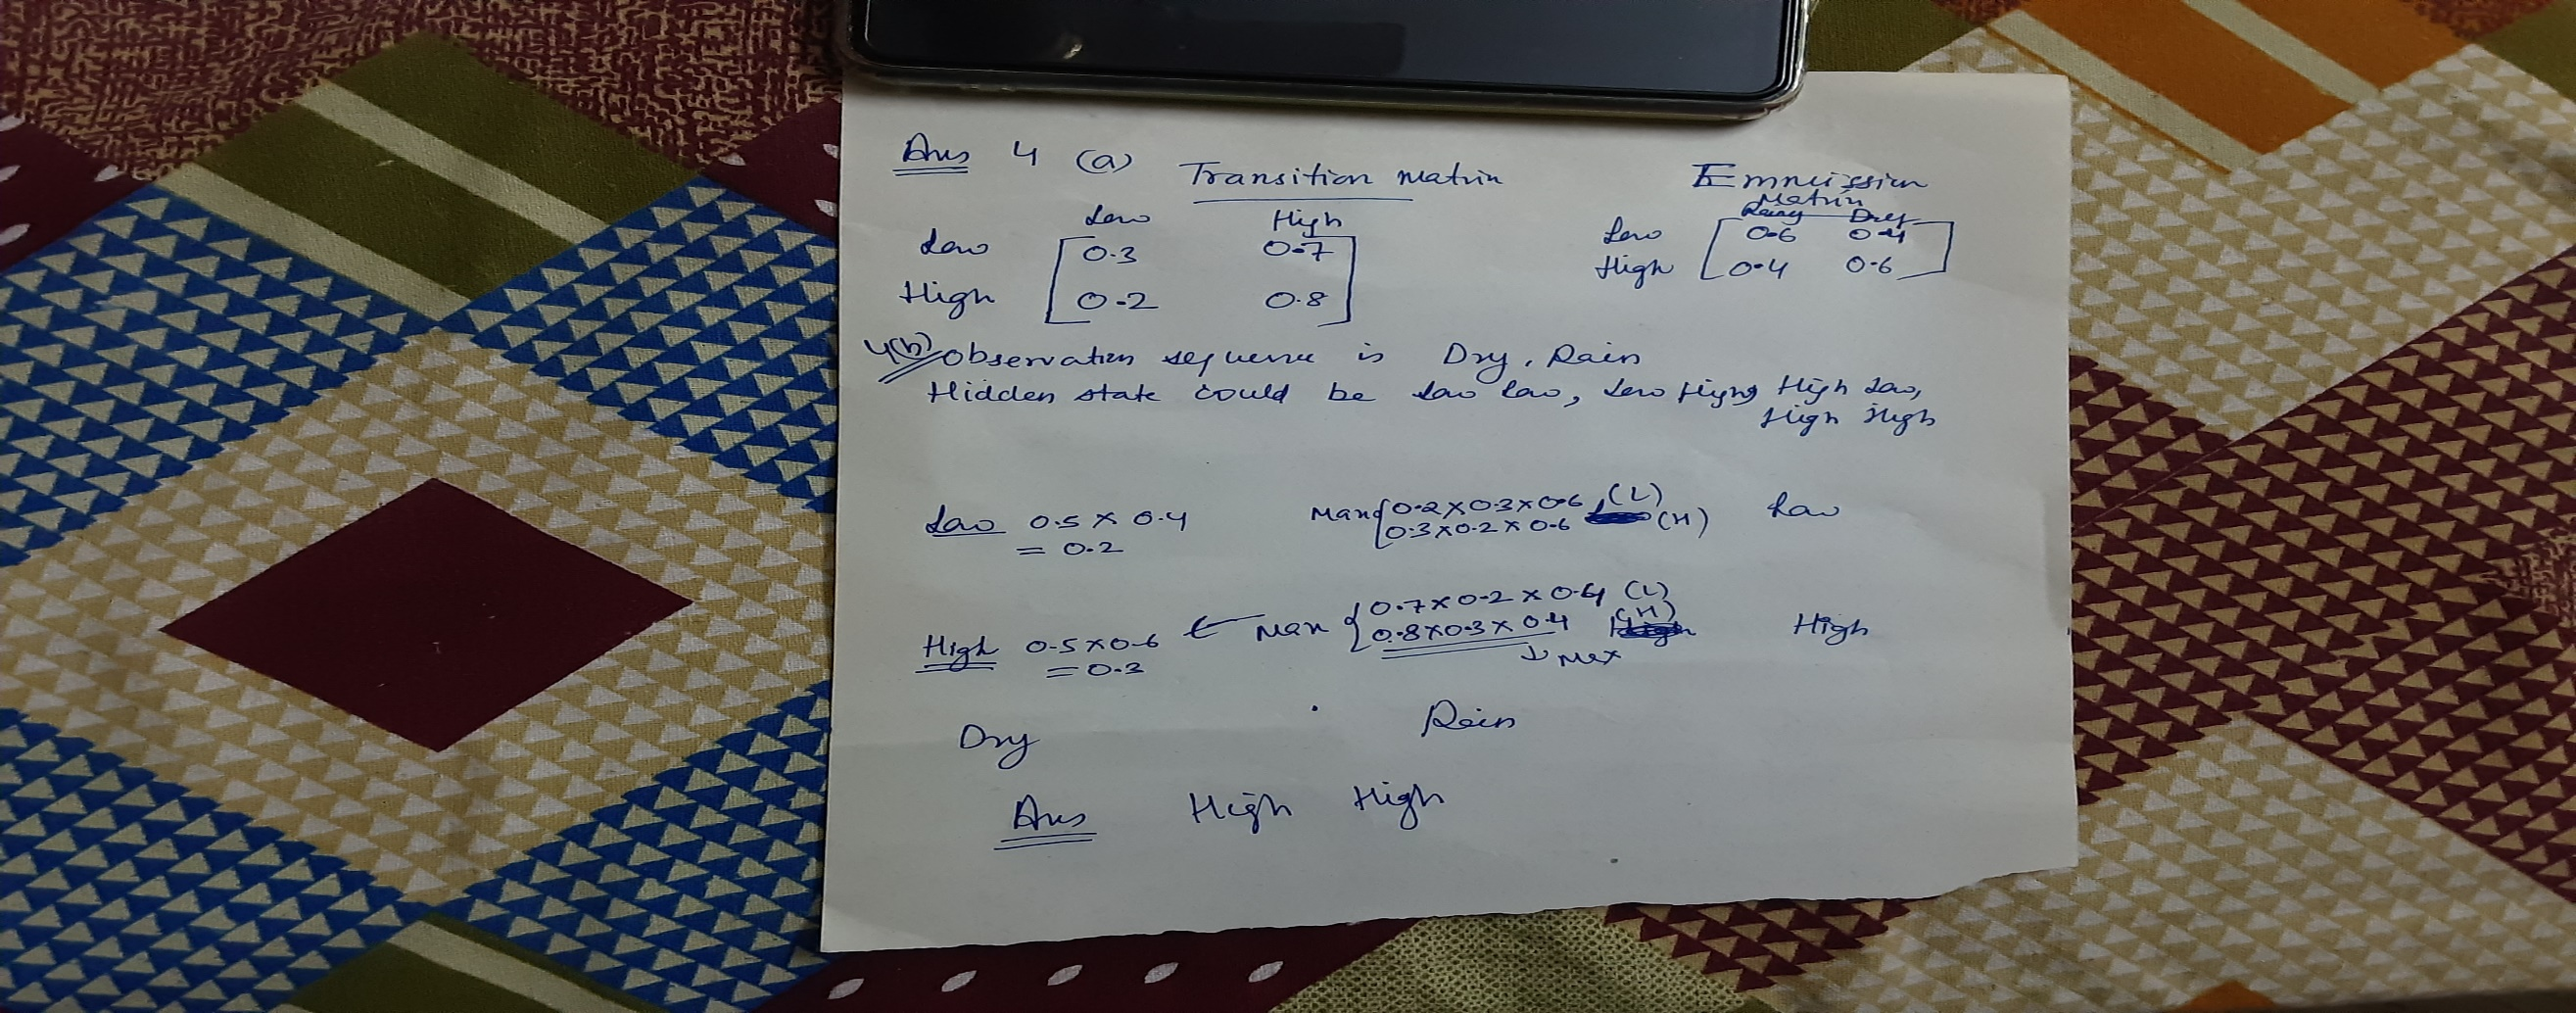 Ans 4 (a) Transition Matrix
Emmission
Matrix
Low High
Rainy Dry
Low 0.3 0.7
Low 0.6 0.4
High 0.2 0.8
High 0.4 0.6
4(b) Observation sequence is Dry, Rain
Hidden state could be Low Low, Low High, High Low,
High High
Low 0.5 × 0.4
= 0.2
Max { 0.2 × 0.3 × 0.6 (L)
0.3 × 0.2 × 0.6 (H)
Low
High 0.5 × 0.6
= 0.3
← Max { 0.7 × 0.2 × 0.4 (L)
0.8 × 0.3 × 0.4 (H)
↓ Max
High
Dry Rain
Ans High High